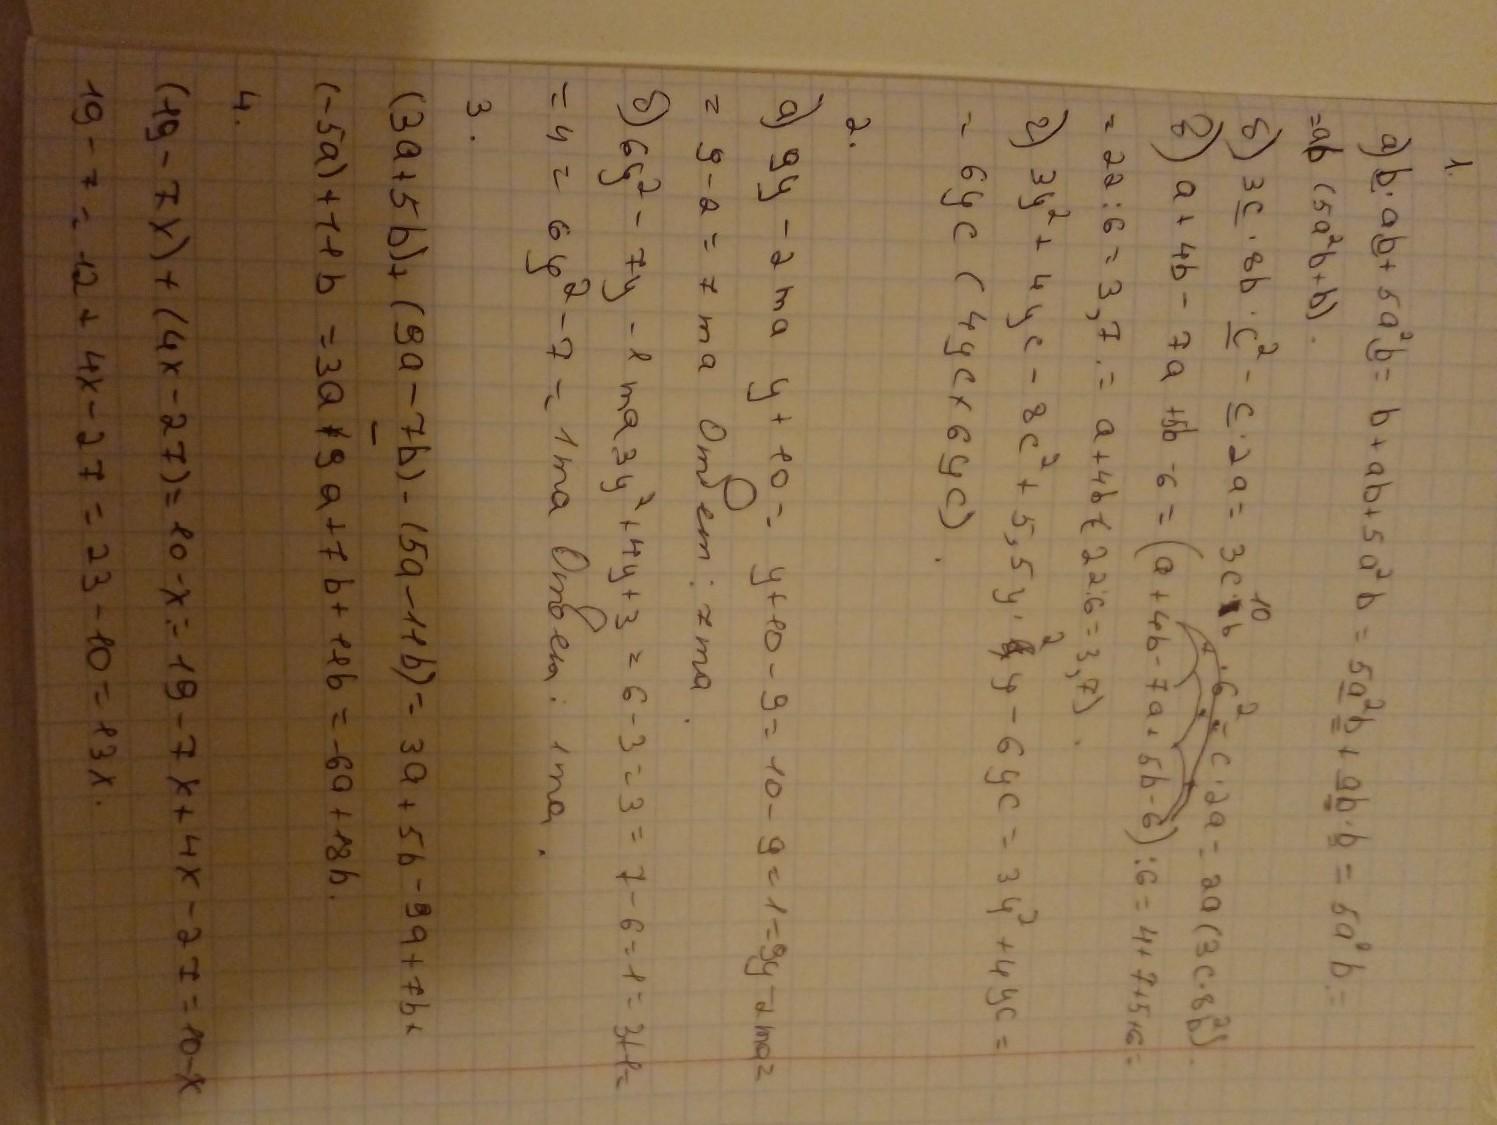 1.
а) b·ab+5a²b = b+ab+5a²b = 5a²b+ab·b = 5a²b =
=ab (5a²b+b).
б) 3c·8b·c²-c·2a = 3c·b¹⁰·6²=c·2a = 2a(3c·8b²).
в) a+4b-7a+5b-6=(a+4b-7a+5b-6):6=4+7+5+6=
=22:6=3,7.= a+4b+(22:6=3,7).
г) 3y²+4yc-8c²+5,5y·y²-6yc=3y²+4yc=
= 6yc (4yc×6yc).
2.
а) 9y-2 та y+10= y+10-9=10-9=1=9y-2та=
= 9-2=7 та Ответ: 7та.
б) 6y²-7y-1 та 3y²+4y+3 = 6-3=3=7-6=1=3+1=
=4= 6y²-7= 1та Ответ: 1та.
3.
(3a+5b)+(9a-7b)-(5a-11b)= 3a+5b-9a+7b+
(-5a)+11b =3a-9a+7b+11b=-6a+18b.
4.
(19-7x)+(4x-27)=10-x=19-7x+4x-27=10-x
19-7=12+4x-27=23-10=13x.